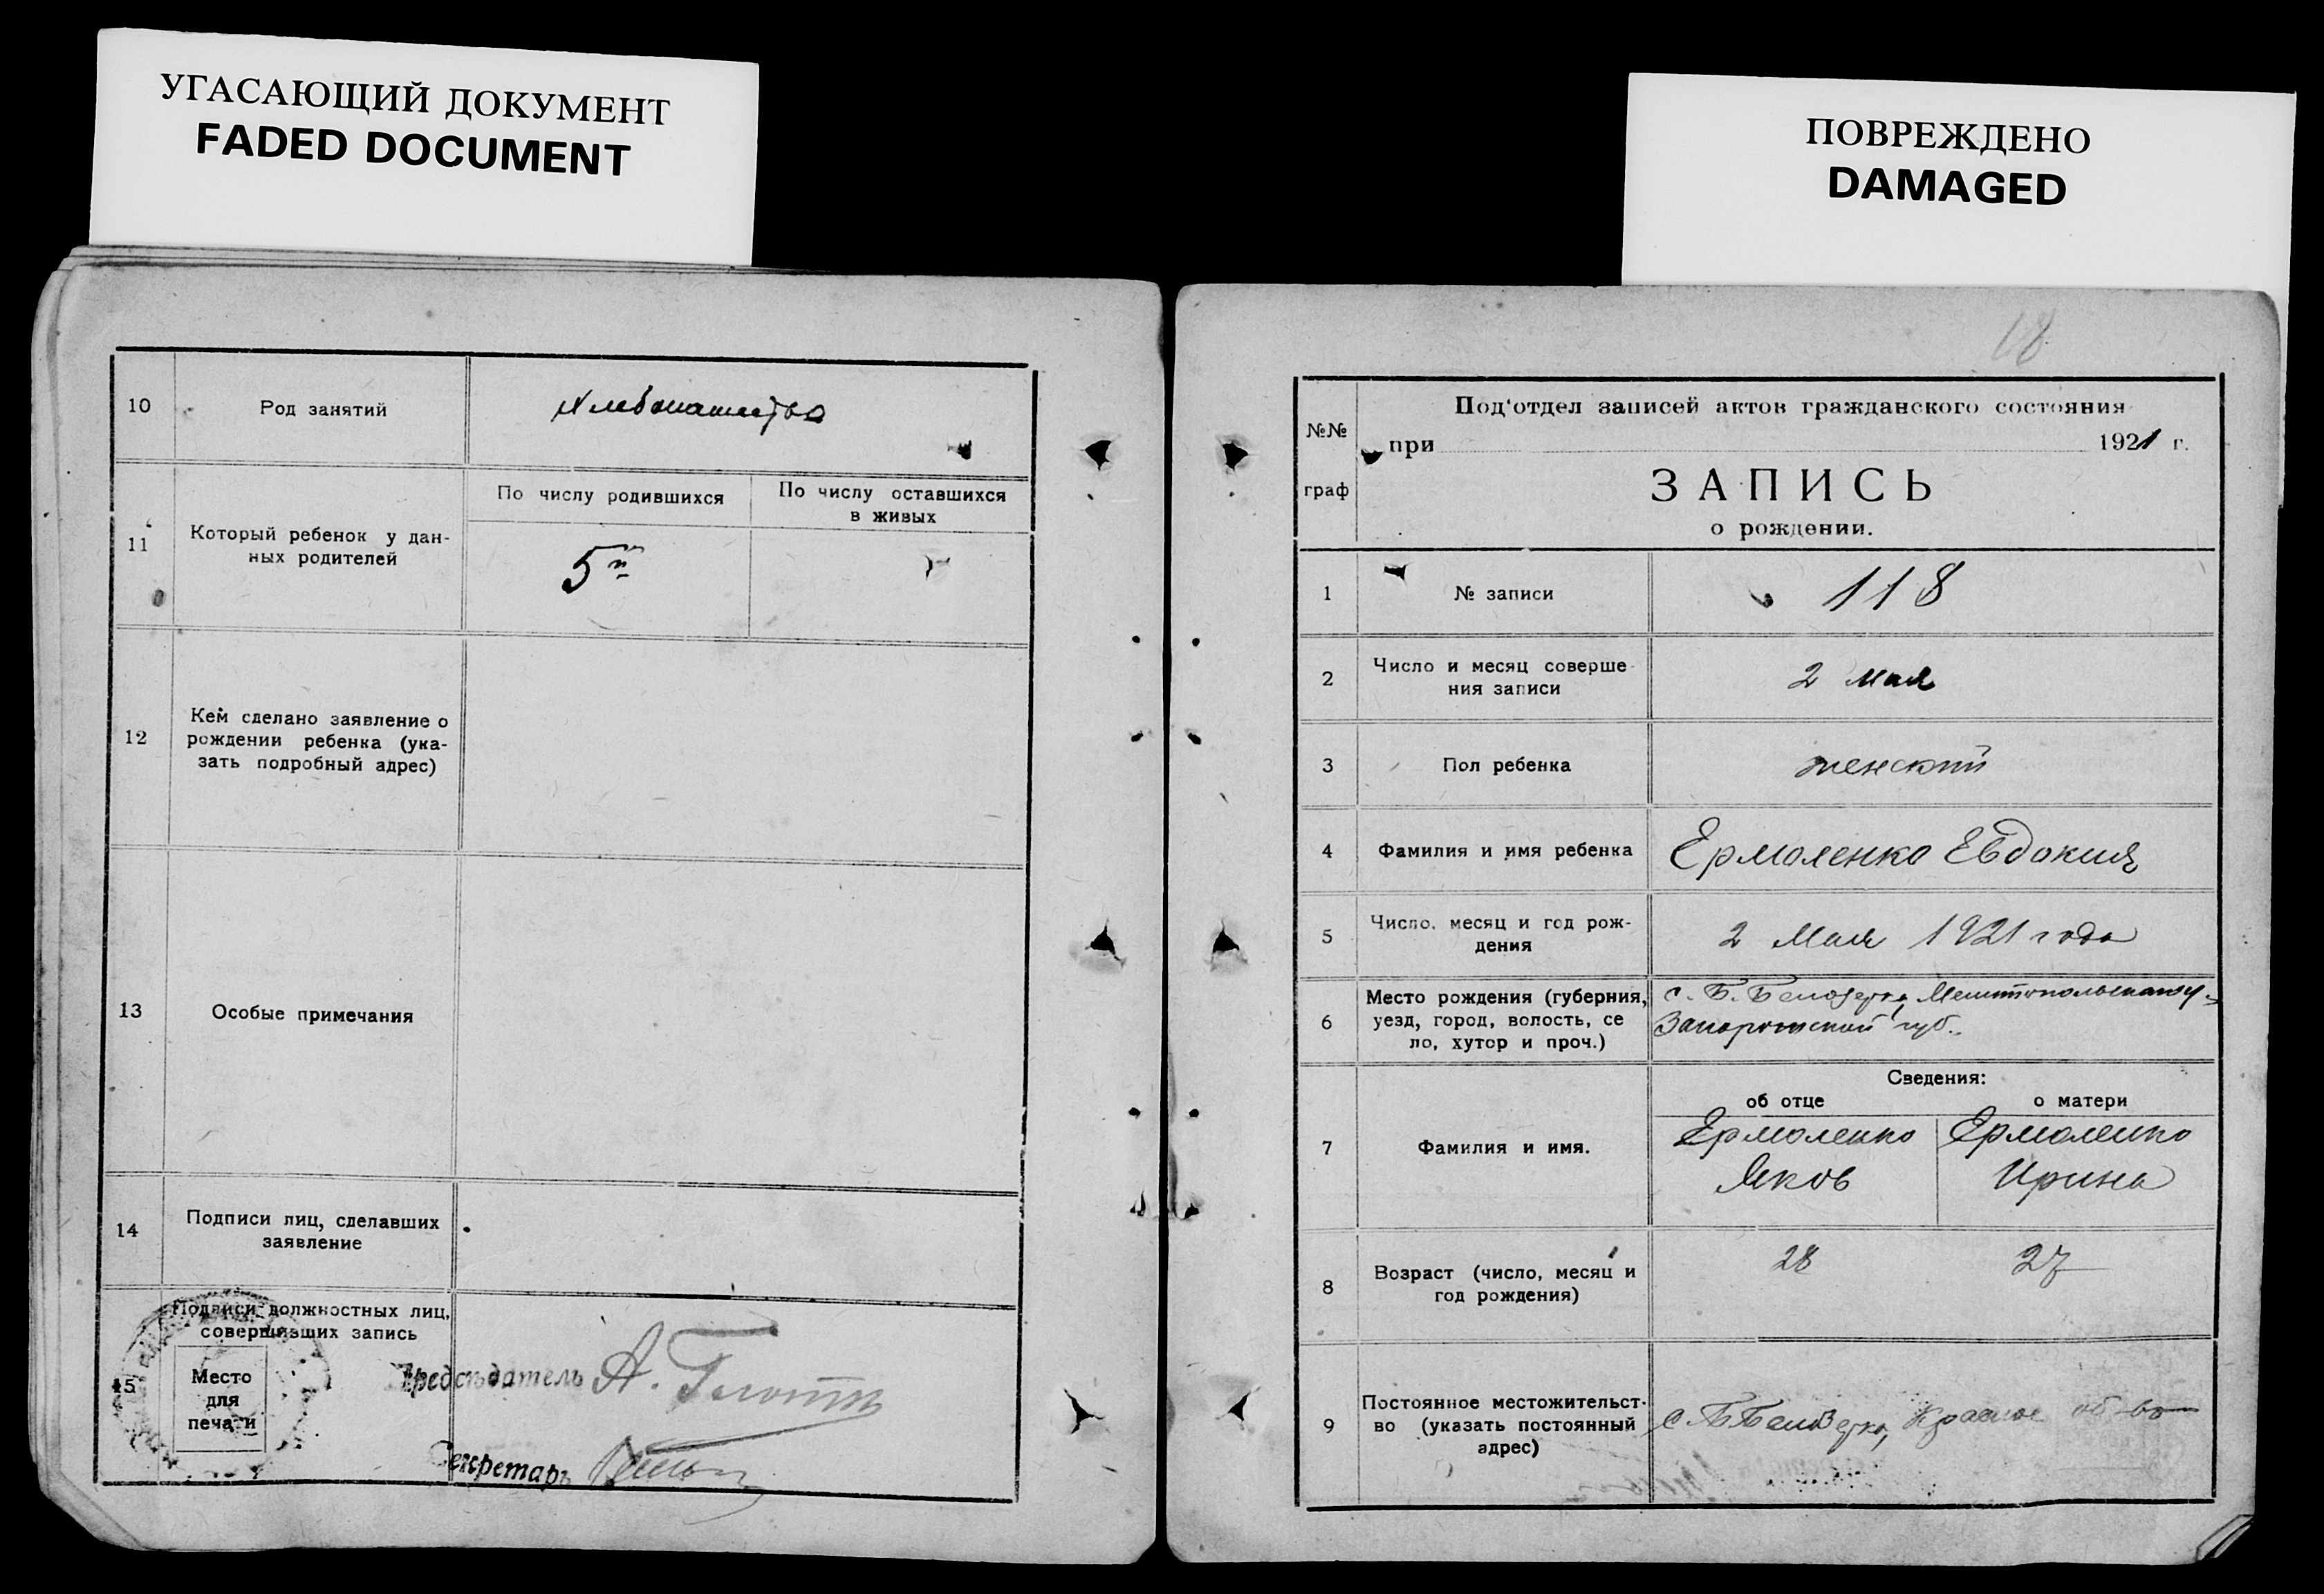 УГАСАЮЩИЙ ДОКУМЕНТ
FADED DOCUMENT
ПОВРЕЖДЕНО
DAMAGED
10 Род занятий Хлебопашество
11 Который ребенок у дан-
ных родителей
По числу родившихся
По числу оставшихся
в живых
5й
12 Кем сделано заявление о
рождении ребенка (ука-
зать подробный адрес)
13 Особые примечания
14 Подписи лиц, сделавших
заявление
15 Подписи должностных лиц,
совершивших запись
Место
для
печати
Председатель А.
Секретарь
18
№№
граф
Под'отдел записей актов гражданского состояния
при 1921 г.
ЗАПИСЬ
о рождении.
1 № записи 118
2 Число и месяц соверше-
ния записи
2 мая
3 Пол ребенка женский
4 Фамилия и имя ребенка Ермоленко Евдокия
5 Число, месяц и год рож-
дения
2 Мая 1921 года
6 Место рождения (губерния,
уезд, город, волость, се
ло, хутор и проч.)
с. Б. Белозерка, Мелитопольского у.
Запорожской губ.
Сведения:
об отце о матери
7 Фамилия и имя.
Ермоленко Ермоленко
Яков Ирина
8 Возраст (число, месяц и
год рождения)
28 27
9 Постоянное местожительст-
во (указать постоянный
адрес)
с. Б Белозерка, Красное об-во